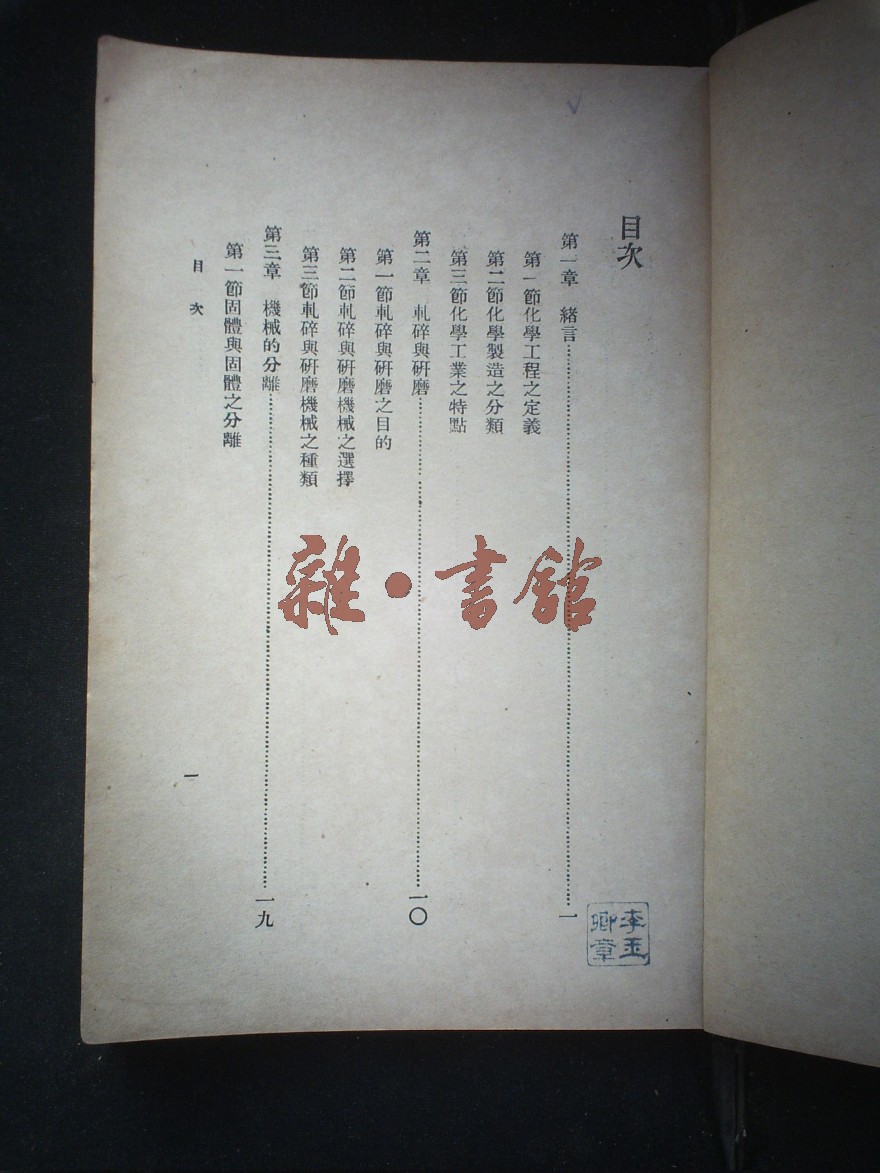 目次
第一章　緒言……一
第一節化學工程之定義
第二節化學製造之分類
第三節化學工業之特點
第二章　軋碎與研磨……一〇
第一節軋碎與研磨之目的
第二節軋碎與研磨機械之選擇
第三節軋碎與研磨機械之種類
第三章　機械的分離……一九
第一節固體與固體之分離
目次
一
雜·書館
李玉
卿章